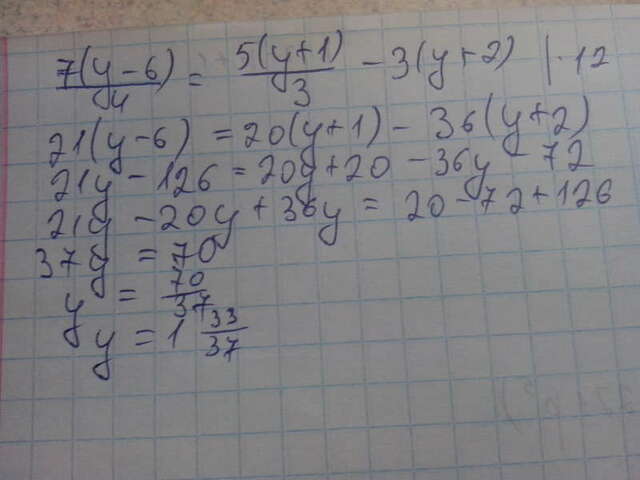 7(y-6)/4 = 5(y+1)/3 - 3(y+2) |·12
21(y-6) = 20(y+1) - 36(y+2)
21y - 126 = 20y + 20 - 36y - 72
21y - 20y + 36y = 20 - 72 + 126
37y = 70
y = 70/37
y = 1 33/37